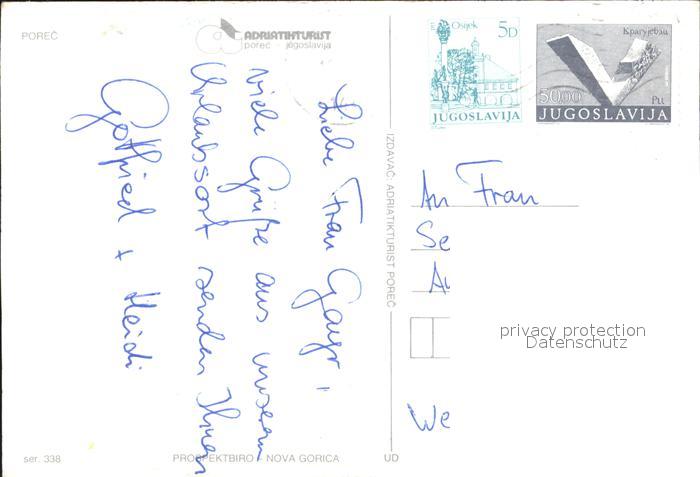 POREČ
ADRIATIKTURIST
poreč - jugoslavija
Liebe Frau
viele Grüße aus unserem
Urlaubsort senden Ihnen
Gottfried + Heidi
ser. 338
PROSPEKTBIRO - NOVA GORICA
UD
IZDAVAČ: ADRIATIKTURIST POREČ
Osijek
5D
JUGOSLAVIJA
50.00
JUGOSLAVIJA
An Frau
Se
We
privacy protection
Datenschutz